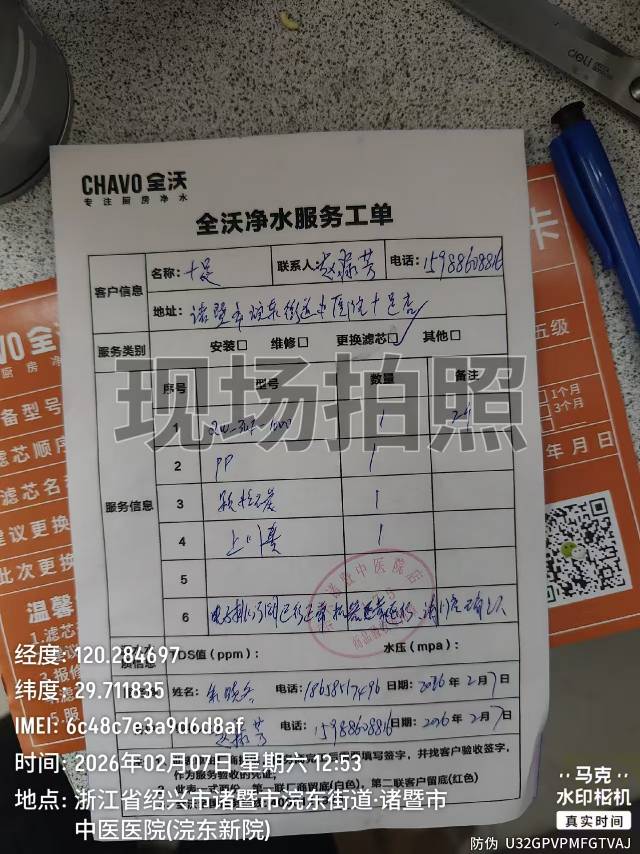 deli
CHAVO 全沃
专注厨房净水
全沃净水服务工单
客户信息
名称：十足
联系人：赵
芳
电话：15988608816
地址：诸暨市浣东街道中医院十足店
服务类别
安装□ 维修□ 更换滤芯□ 其他□
服务信息
序号 型号 数量 备注
1
1
2 PP 1
3 颗粒炭 1
4 上门费 1
5
6
TDS值（ppm）：
水压（mpa）：
姓名：
电话：18658517496 日期：2026年2月7日
15988608816 日期：2026年2月7日
填写签字，并找客户验收签字，
作为服务验收的凭证；
第一联厂商留底(白色)，第二联客户留底(红色)
VO全沃
厨房净
备型号
滤芯顺序
滤芯名
建议更换
此次更换
温馨
卡
五级
1个月
3个月
年 月 日
现场拍照
经度: 120.284697
纬度: 29.711835
IMEI: 6c48c7e3a9d6d8af
时间: 2026年02月07日 星期六 12:53
地点: 浙江省绍兴市诸暨市浣东街道·诸暨市
中医医院(浣东新院)
马克
水印相机
真实时间
防伪 U32GPVPMFGTVAJ